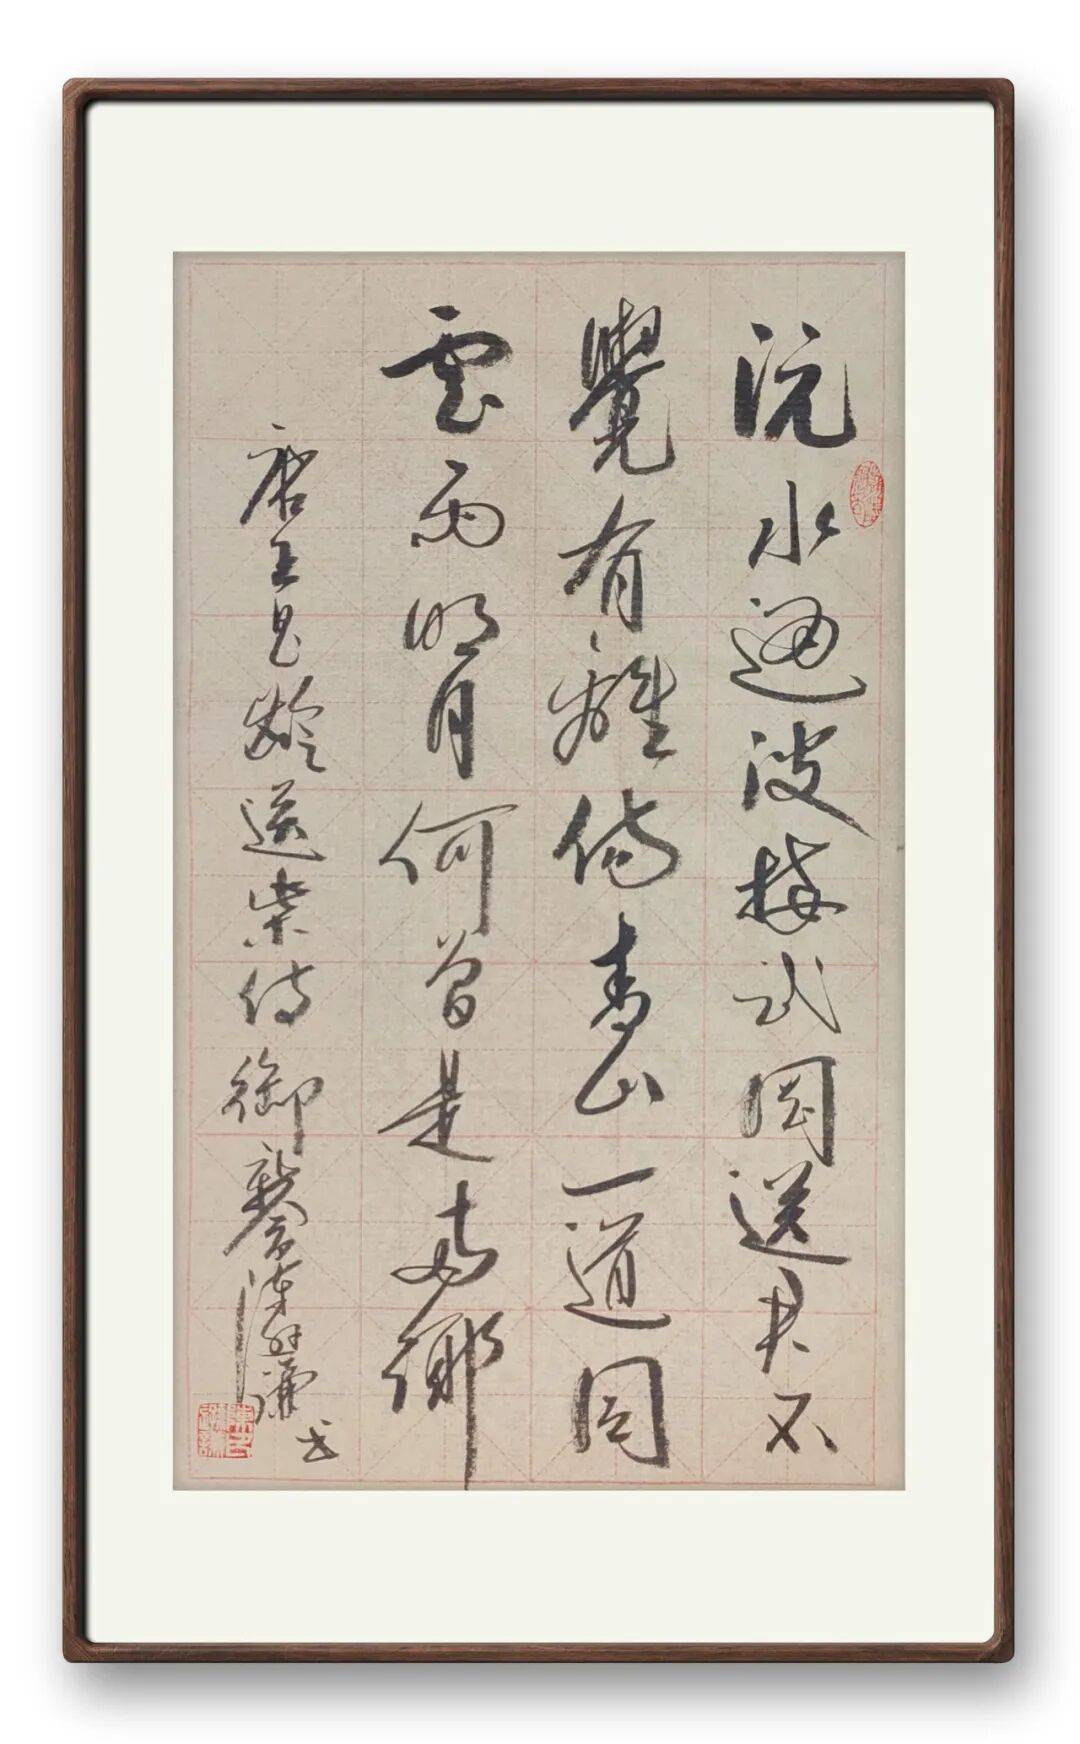 沅水通波接武岡送君不
覺有離傷青山一道同
雲雨明月何曾是兩鄉
唐王昌齡送柴侍御 书